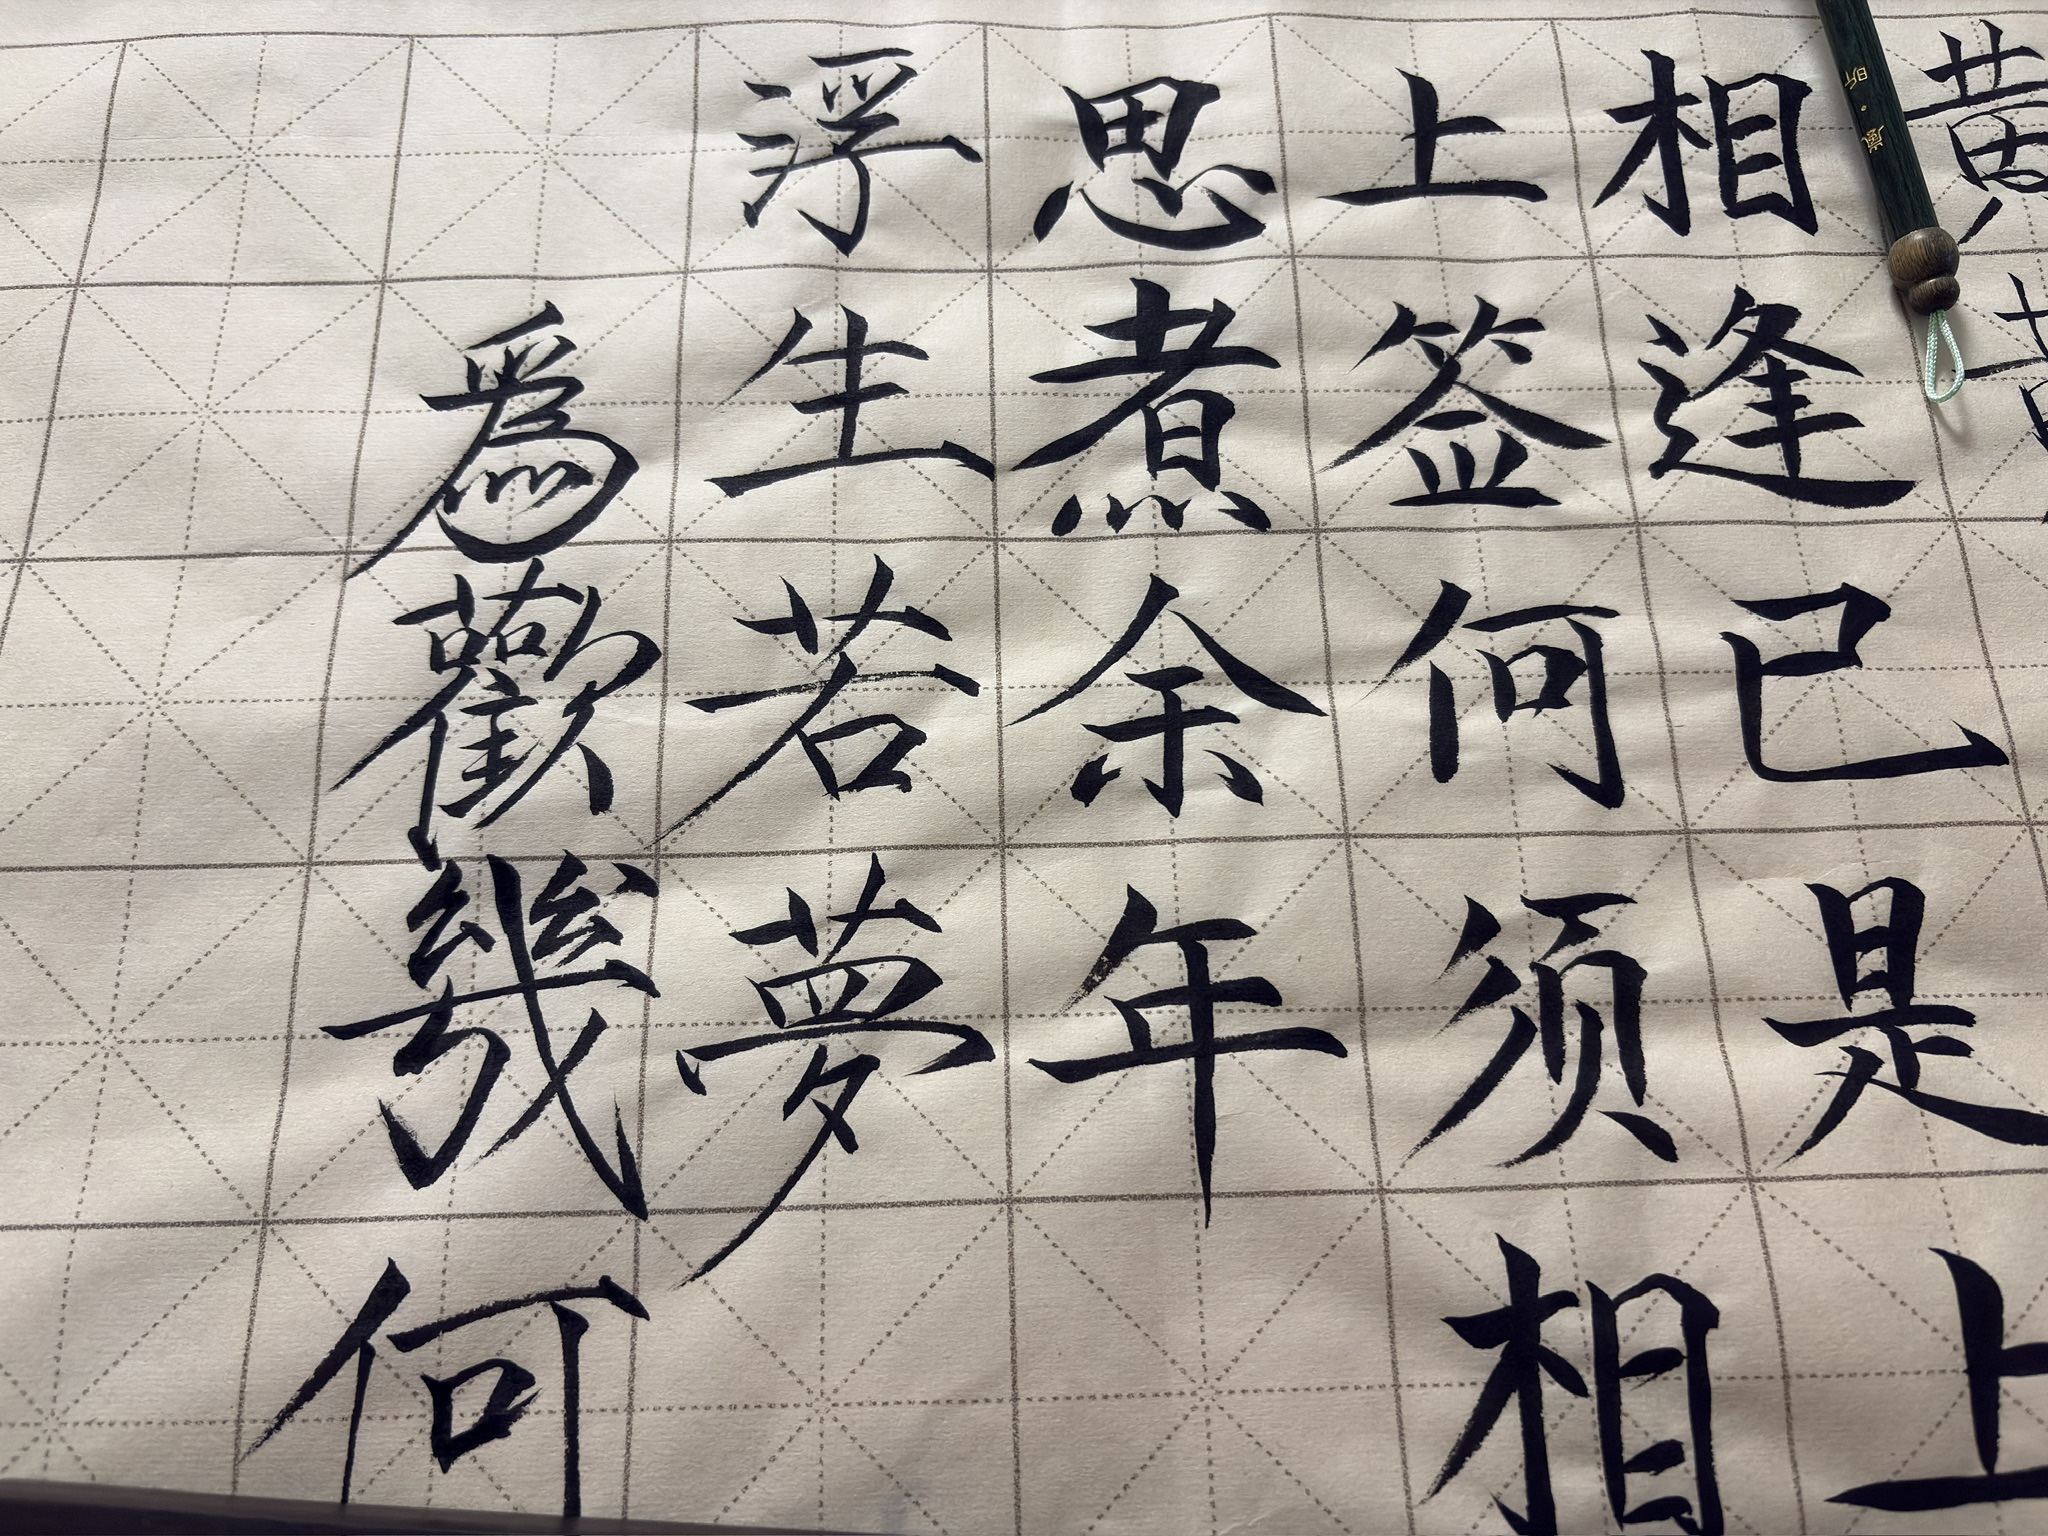 黄
相逢已是上
上签何须相
思煮余年
浮生若夢
爲歡幾何